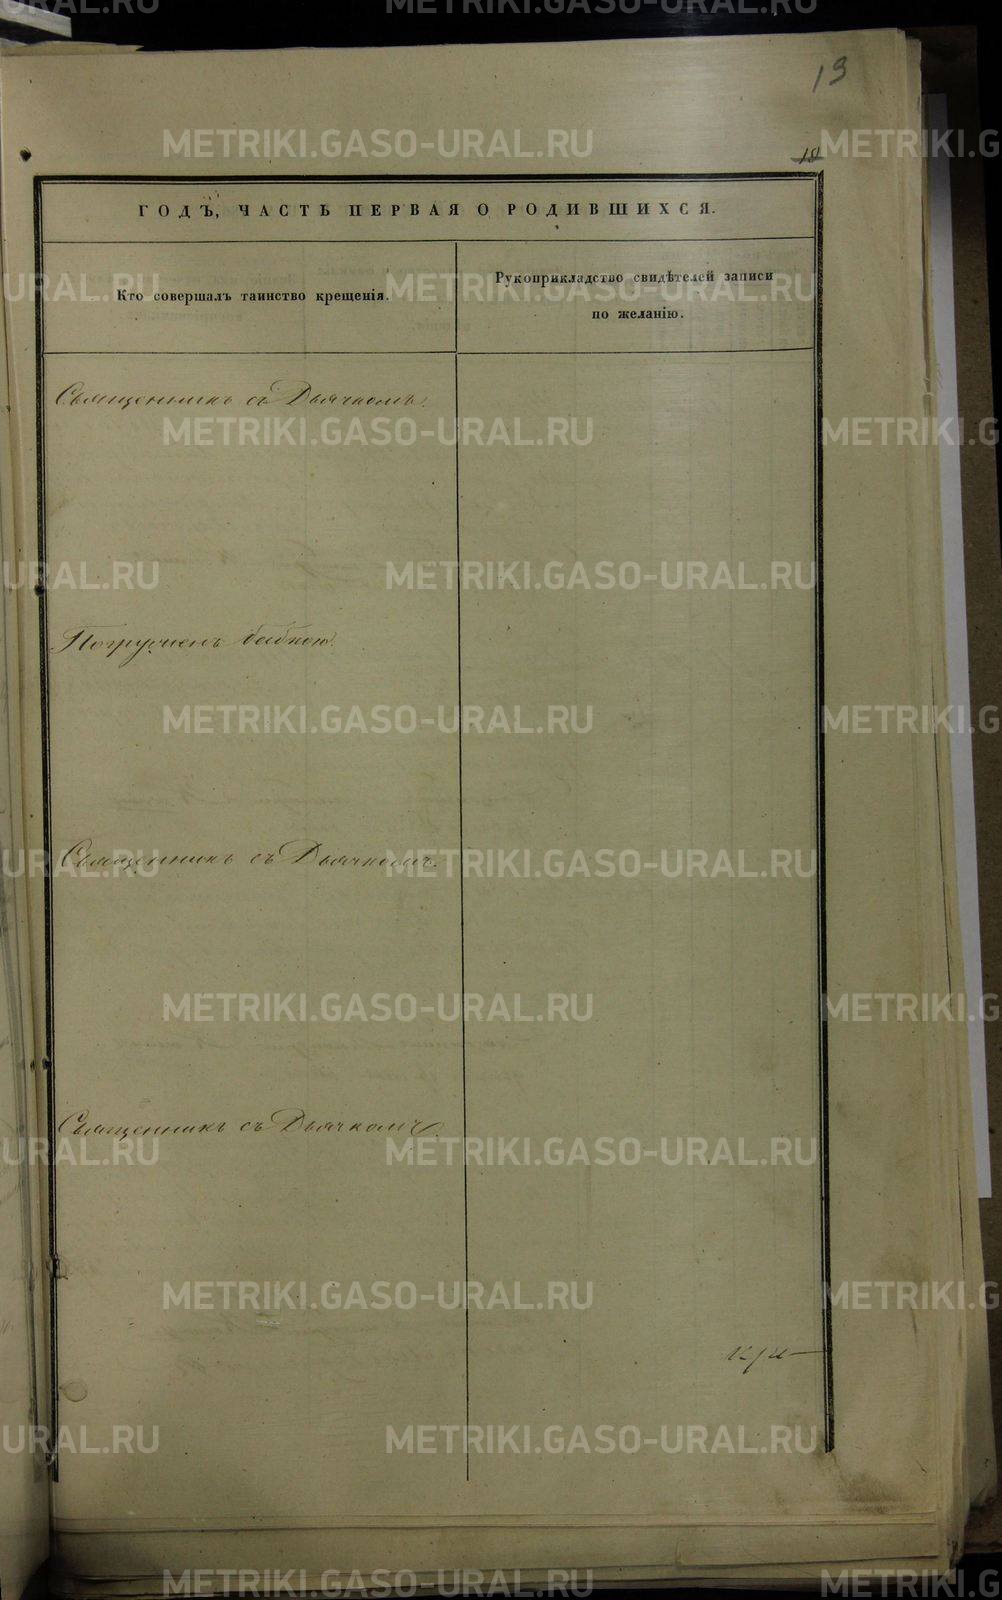 13
18
ГОДЪ, ЧАСТЬ ПЕРВАЯ О РОДИВШИХСЯ.
Кто совершалъ таинство крещенія.
Рукоприкладство свидѣтелей записи
по желанію.
Священникъ съ Дьячкомъ.
Погружен бабкою.
Священникъ съ Дьячкомъ.
Священникъ съ Дьячкомъ.
METRIKI.GASO-URAL.RU